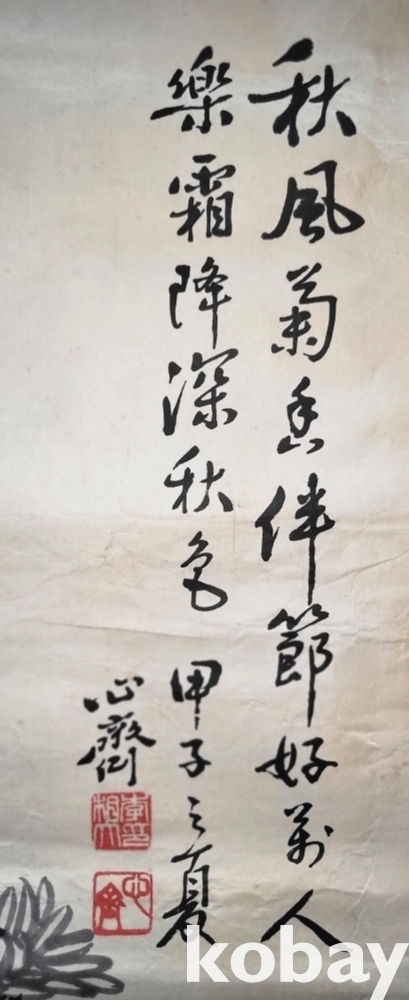 秋風菊香伴節好萬人
樂霜降深秋色 甲子之夏
心
kobay